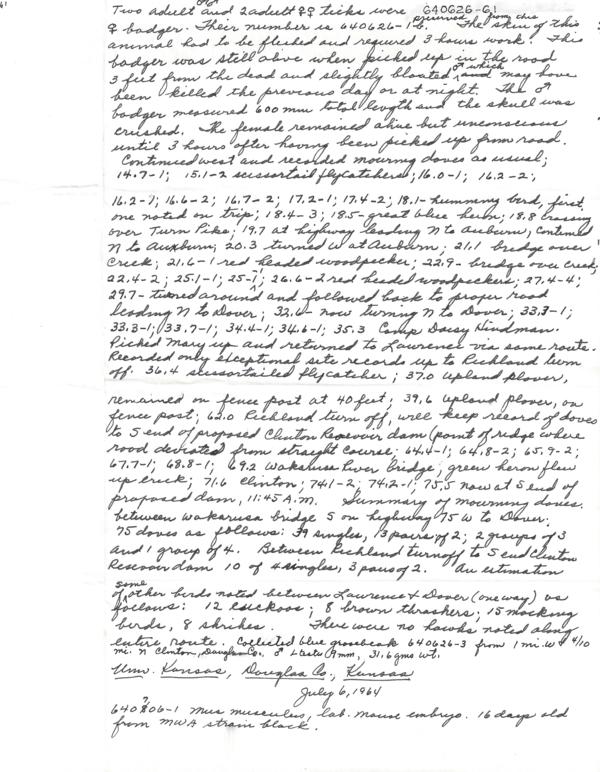 61
Two adult ♂♂ and 2 adult ♀♀ ticks were preserved 640626-61 from this
♀ badger. Their number is 640626-1-6. The skin of this
animal had to be fleshed and required 3 hours work. This
badger was still alive when picked up in the road
3 feet from the dead and slightly bloated ♂ which and may have
been killed the previous day or at night. The ♂
badger measured 600 mm total length and the skull was
crushed. The female remained alive but unconscious
until 3 hours after having been picked up from road.
Continued west and recorded mourning doves as usual;
14.7-1; 15.1-2 scissortail flycatchers; 16.0-1; 16.2-2;
16.2-7; 16.6-2; 16.7-2; 17.2-1; 17.4-2; 18.1-humming bird, first
one noted on trip; 18.4-3; 18.5-great blue heron; 18.8 crossing
over Turn Pike; 19.7 at highway leading N to Auburn, continued
N to Auxburn; 20.3 turned W at Auburn; 21.1 bridge over
Creek; 21.6-1 red headed woodpecker; 22.9-bridge over creek;
22.4-2; 25.1-1; 25-7; 26.6-2 red headed woodpeckers; 27.4-4;
29.7-turned around and followed back to proper road
leading N to Dover; 32.6- now turning N to Dover; 33.3-1;
33.3-1; 33.7-1; 34.4-1; 34.6-1; 35.3 Camp Daisy Hindman.
Picked Mary up and returned to Lawrence via same route.
Recorded only exceptional site records up to Richland turn
off. 36.4 scissortailed flycatcher; 37.0 upland plover,
remained on fence post at 40 feet; 39.6 upland plover, on
fence post; 62.0 Richland turn off, will keep record of doves
to S end of proposed Clinton Reservoir dam (point of ridge where
road deviated from straight course; 64.4-1; 64.8-2; 65.9-2;
67.7-1; 68.8-1; 69.2 Wakarusa River bridge, green heron flew
up creek; 71.6 Clinton; 74.1-2; 74.2-1; 75.5 now at S end of
proposed dam, 11:45 A.M. Summary of mourning doves.
between Wakarusa bridge S on highway 75 W to Dover:
75 doves as follows: 39 singles, 13 pairs of 2; 2 groups of 3
and 1 group of 4. Between Richland turnoff to S end Clinton
Reservoir dam 10 of 4 singles, 3 pairs of 2. An estimation
of some other birds noted between Lawrence & Dover (one way) as
follows: 12 cuckoos; 8 brown thrashers; 15 mocking
birds, 8 shrikes. There were no hawks noted along
entire route. Collected blue grosbeak 640626-3 from 1 mi. W & 4/10
mi. N Clinton, Douglas Co. ♂ L testis 9 mm, 31.6 gms wt.
Univ. Kansas, Douglas Co., Kansas
July 6, 1964
640706-1 Mus musculus, lab. mouse embryo. 16 days old
from MWA strain black.